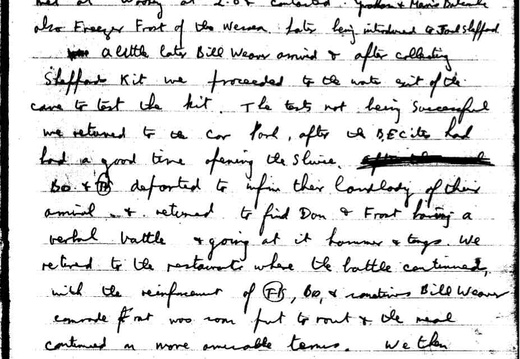 met at Wookey at 2.0 & contacted Graham & Mavis Balcombe
also Freezer Frost of the Wessex. Later being introduced to Jack Sheppard
a little later Bill Weaver arrived & after collecting
Sheppards Kit we proceeded to the water exit of the
cave to test the kit. The tests not being successful
we returned to the Car Park, after the BECites had
had a good time opening the Sluice.
Bo & departed to inform their landlady of their
arrival & returned to find Don & Frost having a
verbal battle & going at it hammer & tongs. We
retired to the restaurant where the battle continued,
with the reinforcement of , Bo, & sometimes Bill Weaver
comrade Frost was soon put to rout & the meal
continued on more amicable terms. We then